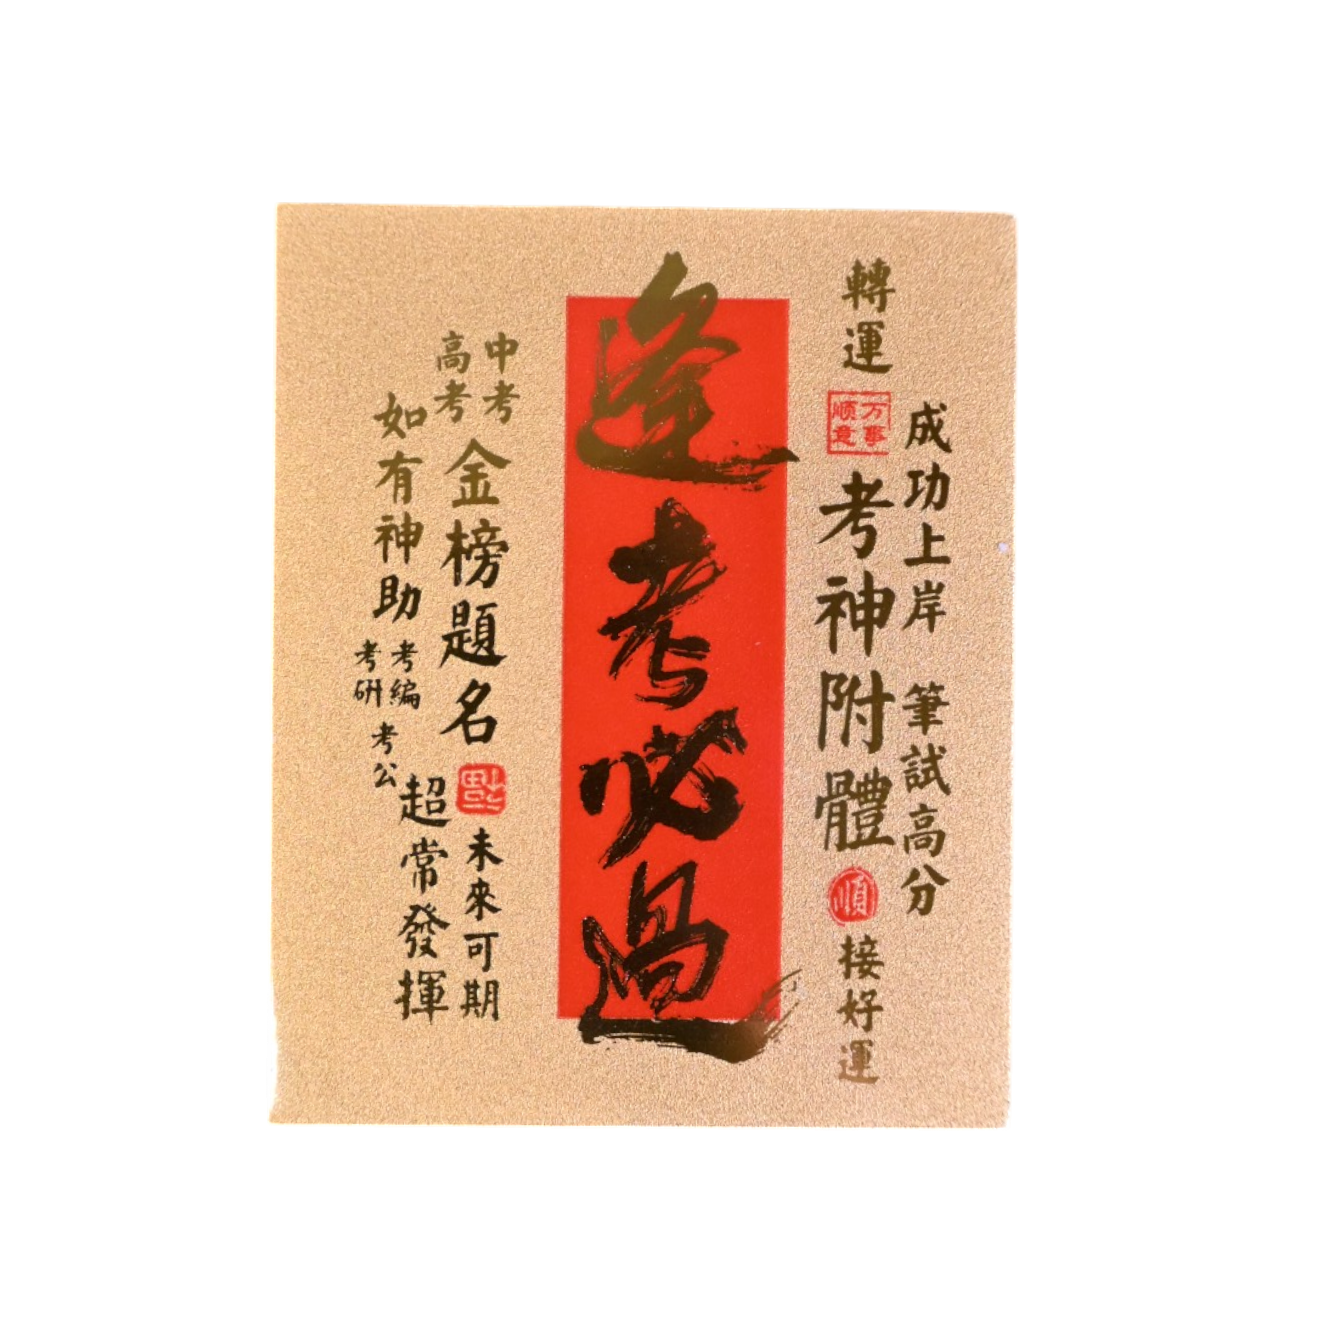 成功上岸 筆試高分
轉運
万事
顺意
考神附體
順
接好運
逢考必過
中考
高考
金榜題名
福
未來可期
如有神助
考編
考研
考公
超常發揮